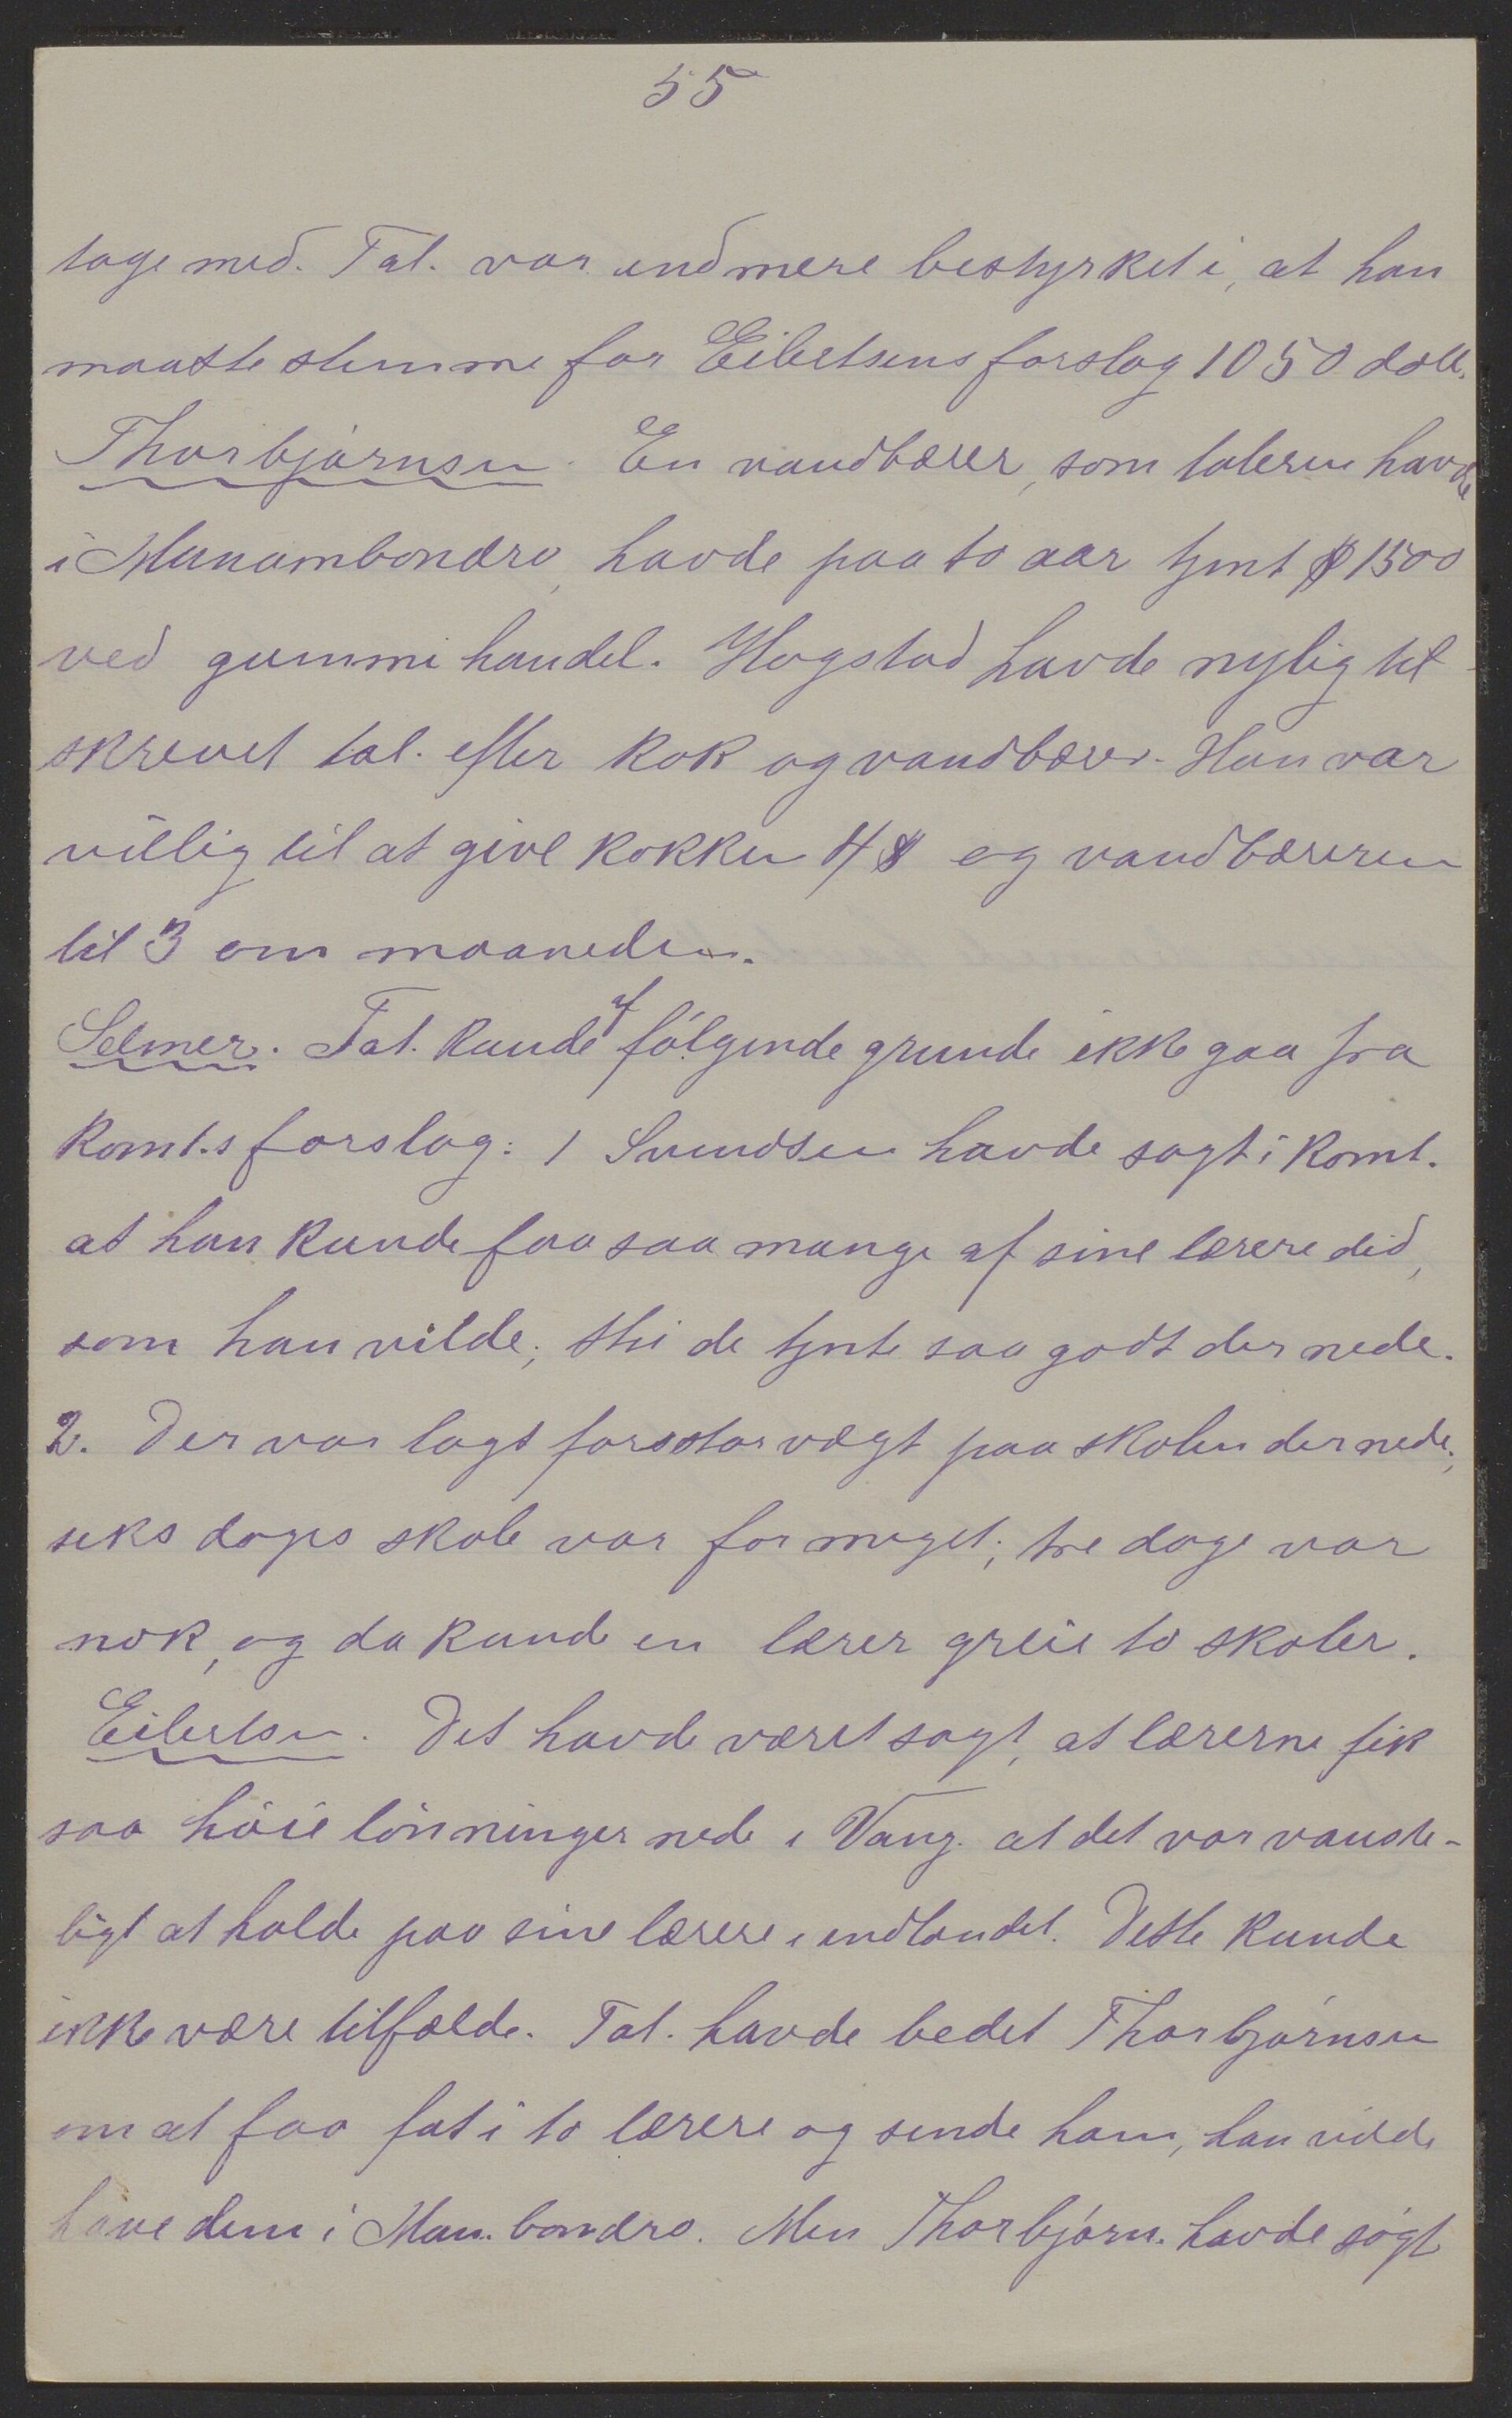 55
tage med. Tal. var end mere bestyrket i, at han
maatte stemme for Eilertsens forslag 1050 doll.
Thorbjørnsen. En vandbærer, som taleren havde
i Manambondro, havde paa to aar tjent $ 1500
ved gummi handel. Hogstad havde nylig til-
skrevet tal. efter kok og vandbærer. Han var
villig til at give kokken 4 $ og vandbæreren
til 3 om maaneden.
Selmer. Tal. kunde af følgende grunde ikke gaa fra
komt.s forslag: 1 Svendsen havde sagt i komt.
at han kunde faa saa mange af sine lærere did,
som han vilde; thi de tjente saa godt der nede.
2. Der var lagt for stor vægt paa skolen der nede;
seks dages skole var for meget; tre dage var
nok, og da kunde en lærer greie to skoler.
Eilertsen. Det havde været sagt, at lærerne fik
saa høie lønninger nede i Vang. at det var vanske-
ligt at holde paa sine lærere i indlandet. Dette kunde
ikke være tilfælde. Tal. havde bedet Thorbjørnsen
om at faa fat i to lærere og sende ham, han vilde
have dem i Man.bondro. Men Thorbjørn. havde søgt